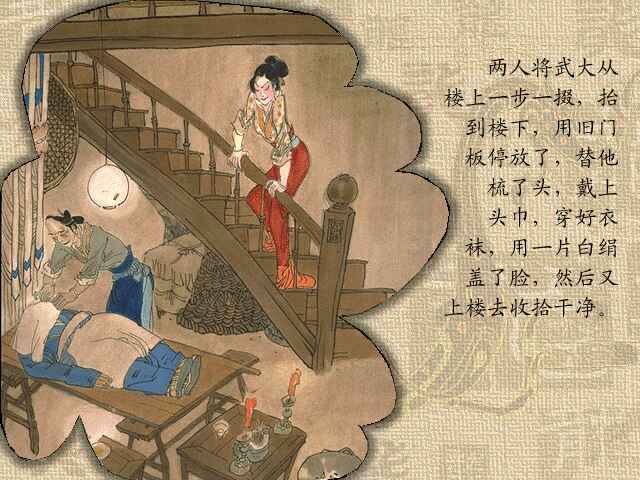 两人将武大从
楼上一步一掇，抬
到楼下，用旧门
板停放了，替他
梳了头，戴上
头巾，穿好衣
袜，用一片白绢
盖了脸，然后又
上楼去收拾干净。